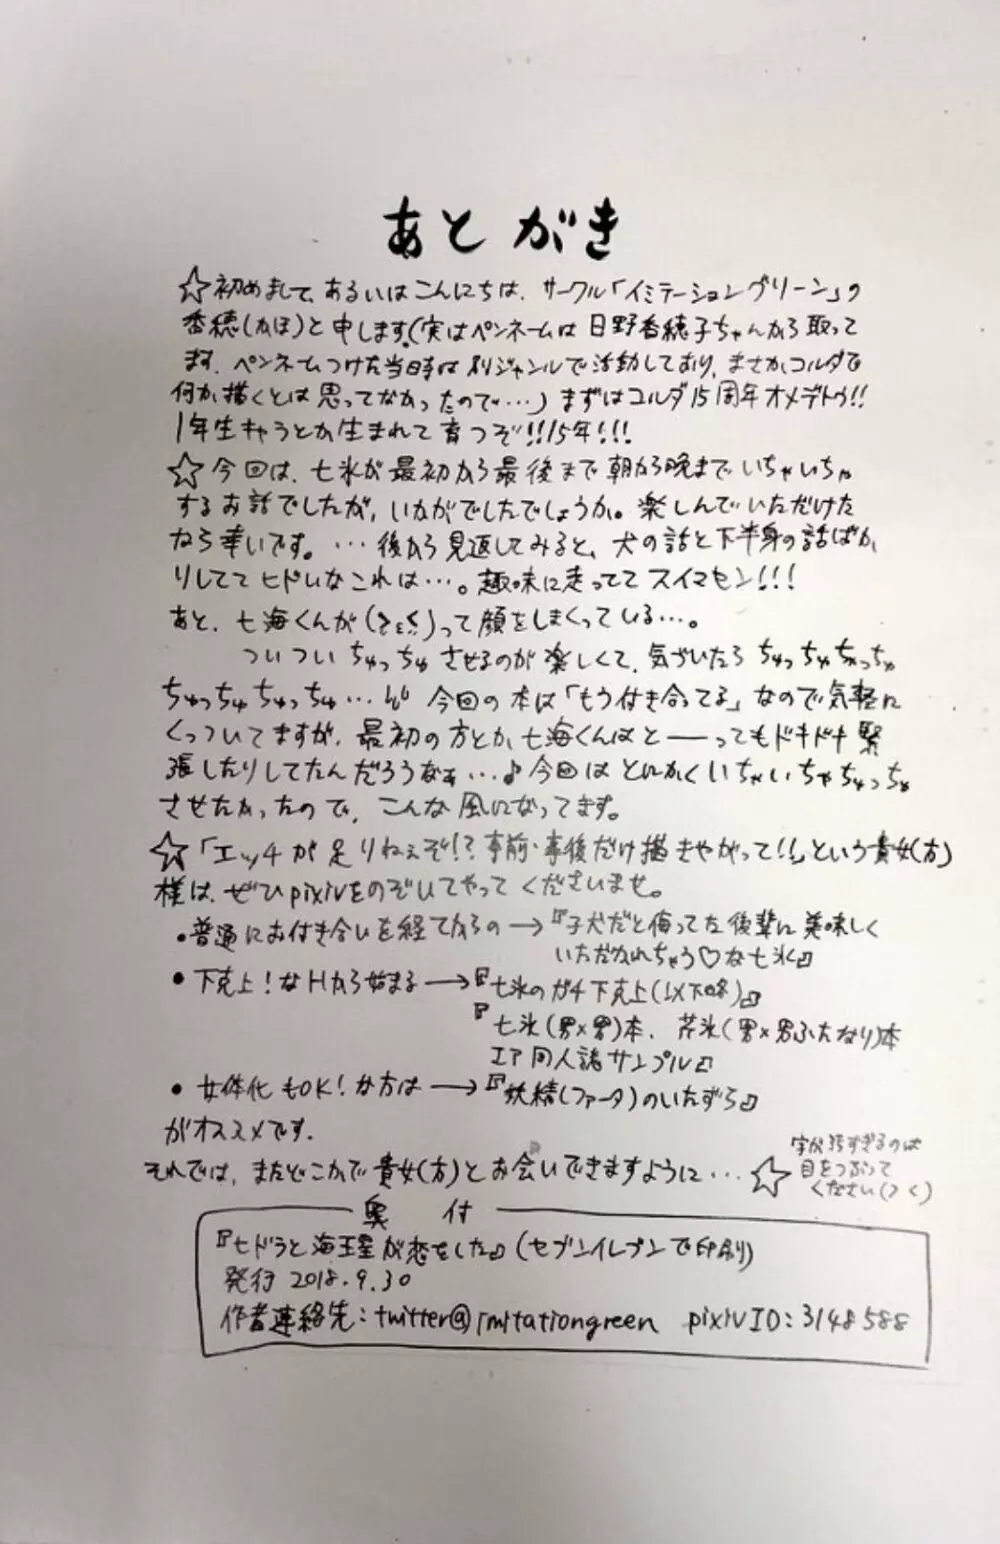 あとがき
☆初めまして、あるいはこんにちは、サークル「イミテーショングリーン」の
香穂(かほ)と申します。(実はペンネームは日野香穂子ちゃんから取って
ます。ペンネームつけた当時は別ジャンルで活動しており、まさかコルダで
何か描くとは思ってなかったので…)まずはコルダ15周年オメデトウ!!
1年生キャラとか生まれて育つぞ!!15年!!!
☆今回は、七氷が最初から最後まで朝から晩までいちゃいちゃ
するお話でしたが、いかがでしたでしょうか。楽しんでいただけた
なら幸いです。…後から見返してみると、犬の話と下半身の話ばか
りしててヒドいなこれは…。趣味に走っててスイマセン!!!
あと、七海くんが()って顔をしまくっている…。
ついついちゅっちゅさせるのが楽しくて、気づいたらちゅっちゅちゅっちゅ
ちゅっちゅちゅっちゅ… 今回の本は「もう付き合ってる」なので気軽に
くっついてますが、最初の方とか、七海くんはと――ってもドキドキ緊
張したりしてたんだろうなぁ…♪今回はとにかくいちゃいちゃちゅっちゅ
させたかったので、こんな風になってます。
☆「エッチが足りねぇぞ!?事前・事後だけ描きやがって!!」という貴女(方)
様は、ぜひpixivをのぞいてやってくださいませ。
・普通にお付き合いを経てからの→『子犬だと侮ってた後輩に美味しく
いただかれちゃう♡な七氷』
・下克上!なHから始まる→『七氷のガチ下克上(以下略)』
『七氷(男×男)本、芹氷(男×男ふたなり)本
エア同人誌サンプル』
・女体化もOK!な方は→『妖精(ファータ)のいたずら』
がオススメです。
それでは、またどこかで貴女(方)とお会いできますように…☆
字が汚すぎるのは
目をつぶって
ください(>く)
奥付
『七ドラと海王星が恋をした』(セブンイレブンで印刷)
発行 2018.9.30
作者連絡先:twitter@imitationgreen pixivID:3148588